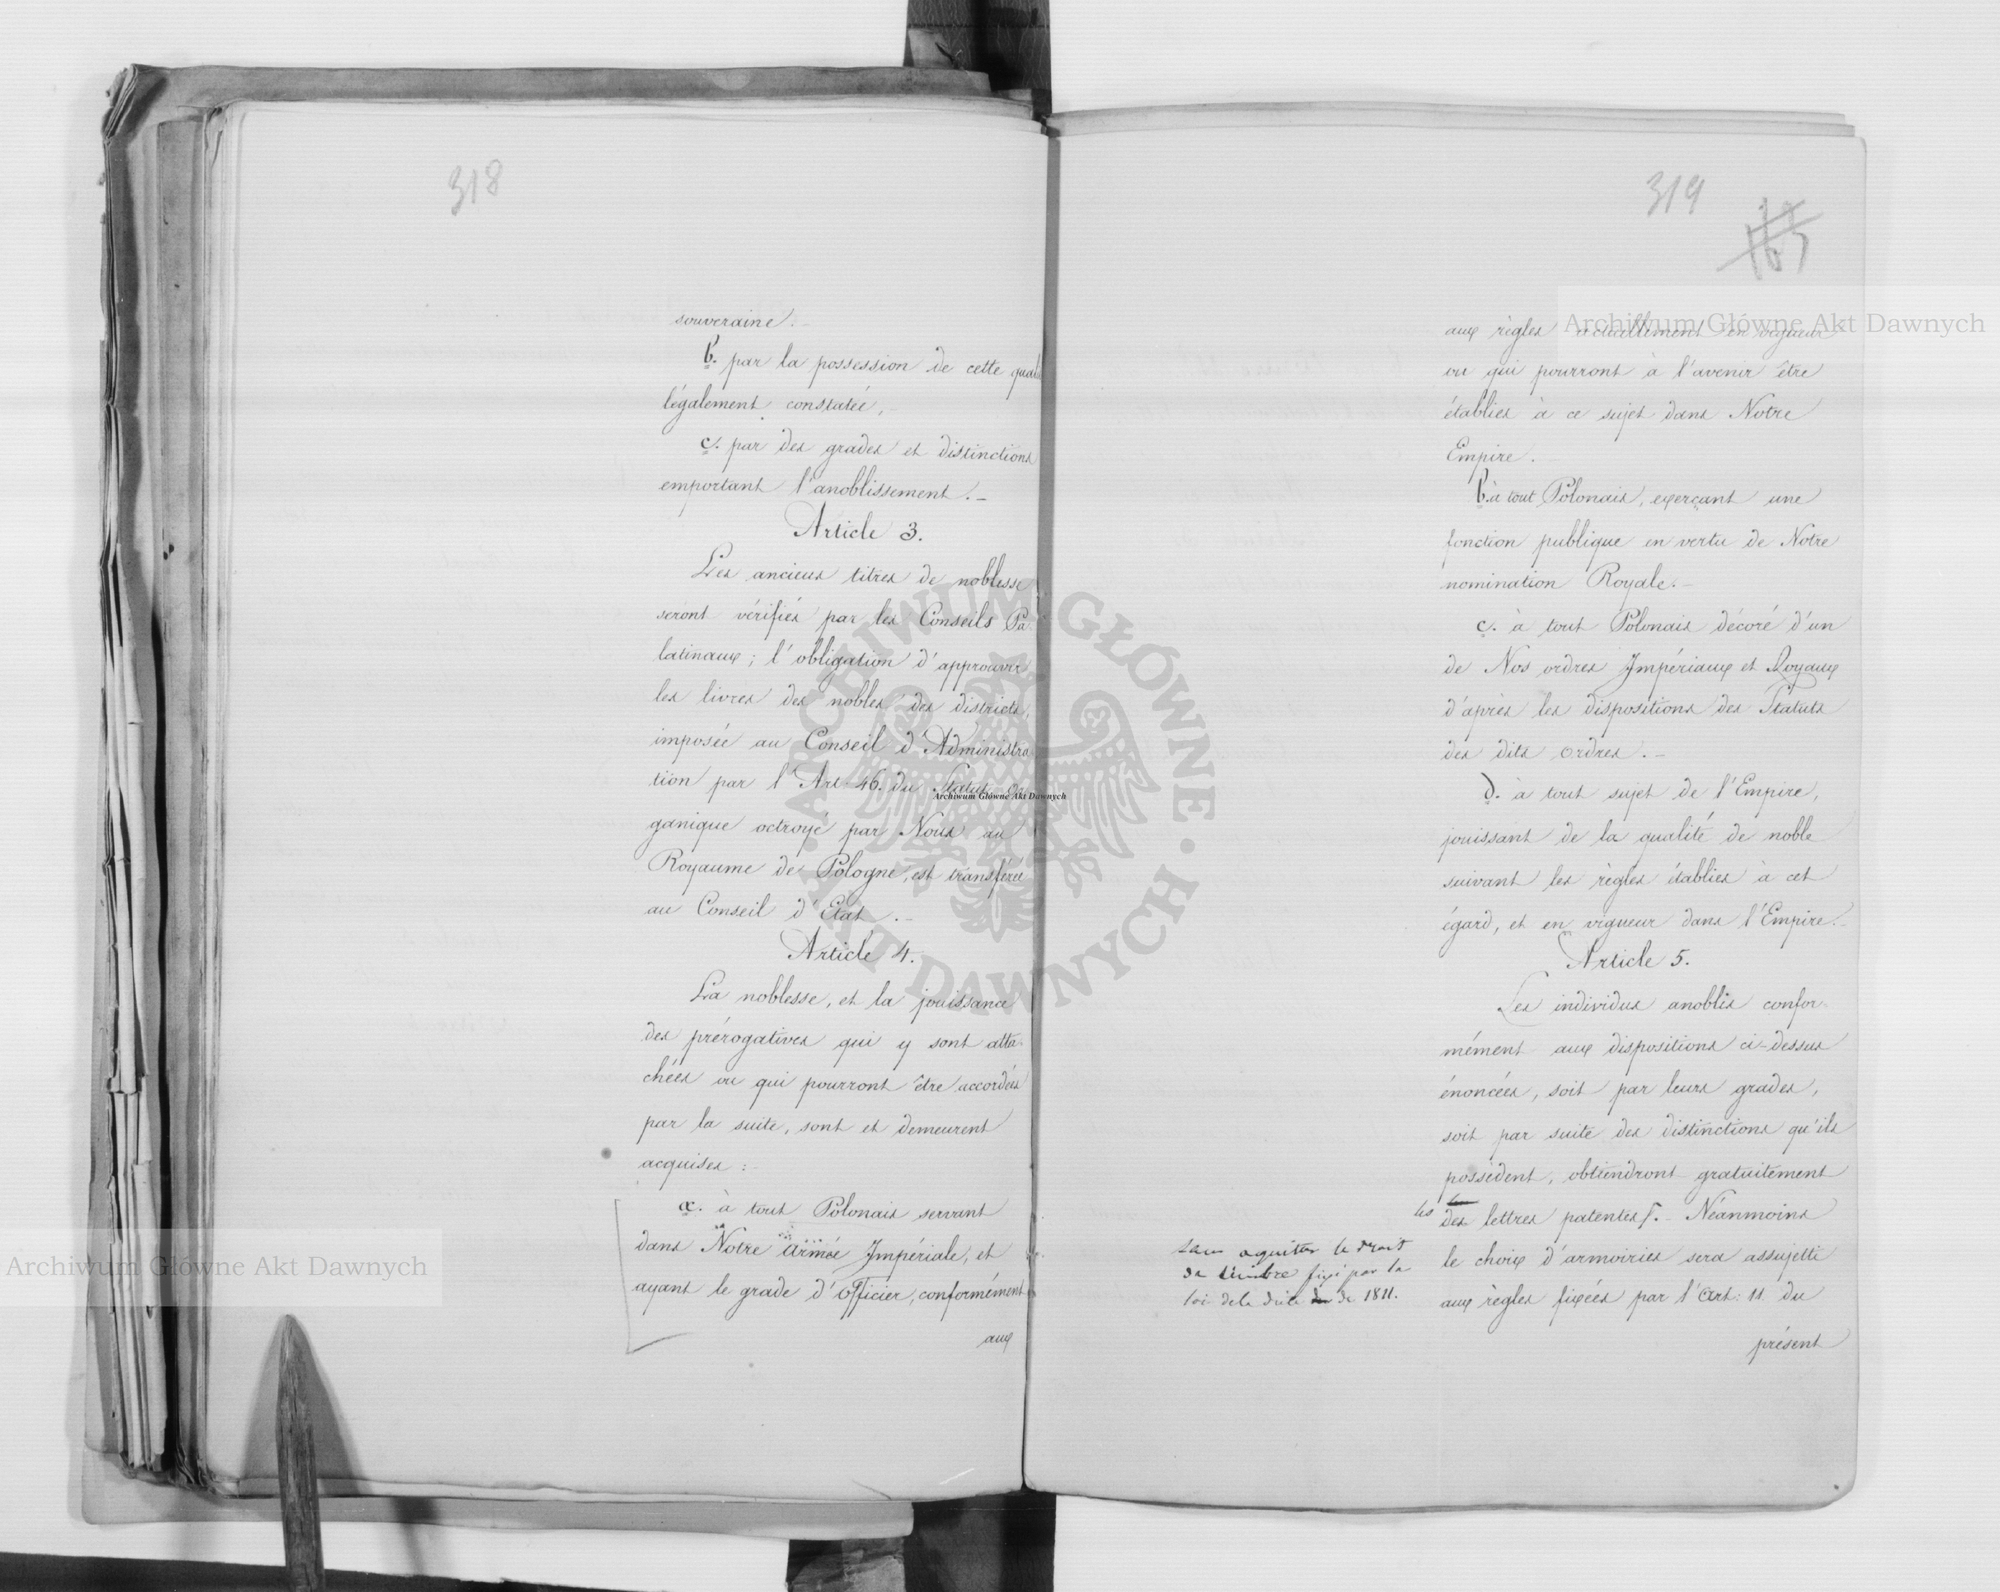 318
souveraine.
b. par la possession de cette quali
légalement constatée,
c. par des grades et distinctions
emportant l'anoblissement.
Article 3.
Les anciens titres de noblesse
seront vérifiés par les Conseils Pa
latinaux; l'obligation d'approuver
les livres des nobles des districts,
imposée au Conseil d'Administra
tion par l'Art. 46. du Statut Or
ganique octroyé par Nous au
Royaume de Pologne, est transférée
au Conseil d'État.
Article 4.
La noblesse, et la jouissance
des prérogatives qui y sont atta
chées ou qui pourront être accordées
par la suite, sont et demeurent
acquises:
a. à tout Polonais servant
dans Notre armée Impériale, et
ayant le grade d'Officier, conformément
aux
319
aux règles actuellement en vigueur
ou qui pourront à l'avenir être
établies à ce sujet dans Notre
Empire.
b. à tout Polonais, exerçant une
fonction publique en vertu de Notre
nomination Royale.
c. à tout Polonais décoré d'un
de Nos ordres Impériaux et Royaux
d'après les dispositions des Statuts
des dits ordres.
d. à tout sujet de l'Empire,
jouissant de la qualité de noble
suivant les règles établies à cet
égard, et en vigueur dans l'Empire.
Article 5.
Les individus anoblis confor-
mément aux dispositions ci-dessus
énoncées, soit par leurs grades,
soit par suite des distinctions qu'ils
possèdent, obtiendront gratuitement
les des lettres patentes. Néanmoins
le choix d'armoiries sera assujetti
aux règles fixées par l'Art: 11 du
présent
sans aquitter le droit
de timbre fixé par la
loi de la diète de 1811.
Archiwum Główne Akt Dawnych
Archiwum Główne Akt Dawnych
Archiwum Główne Akt Dawnych
ARCHIWUM GŁÓWNE AKT DAWNYCH